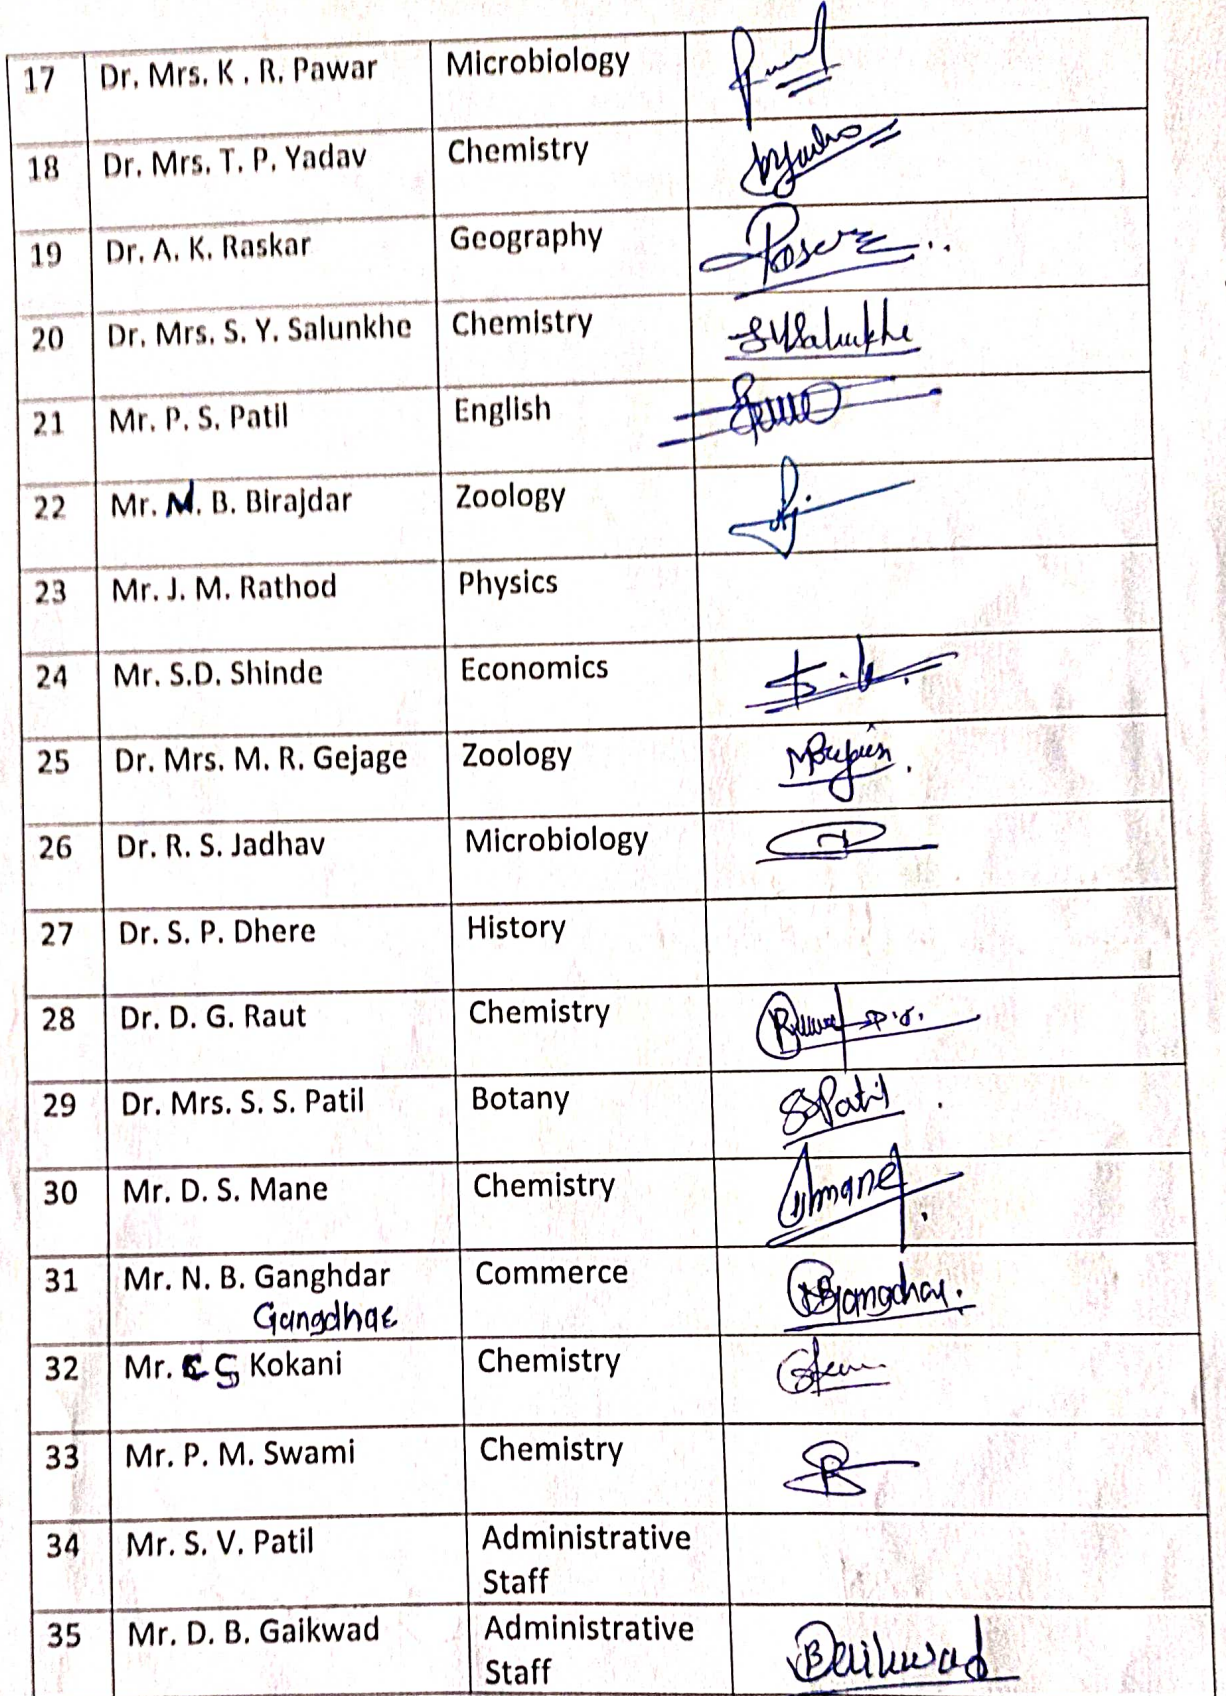 17 Dr. Mrs. K . R. Pawar Microbiology
18 Dr. Mrs. T. P. Yadav Chemistry
19 Dr. A. K. Raskar Geography
20 Dr. Mrs. S. Y. Salunkhe Chemistry SYSalunkhe
21 Mr. P. S. Patil English
22 Mr. M. B. Birajdar Zoology
23 Mr. J. M. Rathod Physics
24 Mr. S.D. Shinde Economics
25 Dr. Mrs. M. R. Gejage Zoology
26 Dr. R. S. Jadhav Microbiology
27 Dr. S. P. Dhere History
28 Dr. D. G. Raut Chemistry
29 Dr. Mrs. S. S. Patil Botany SSPatil
30 Mr. D. S. Mane Chemistry
31 Mr. N. B. Ganghdar Commerce
Gangdhar
32 Mr. G Kokani Chemistry
33 Mr. P. M. Swami Chemistry
34 Mr. S. V. Patil Administrative
Staff
35 Mr. D. B. Gaikwad Administrative
Staff